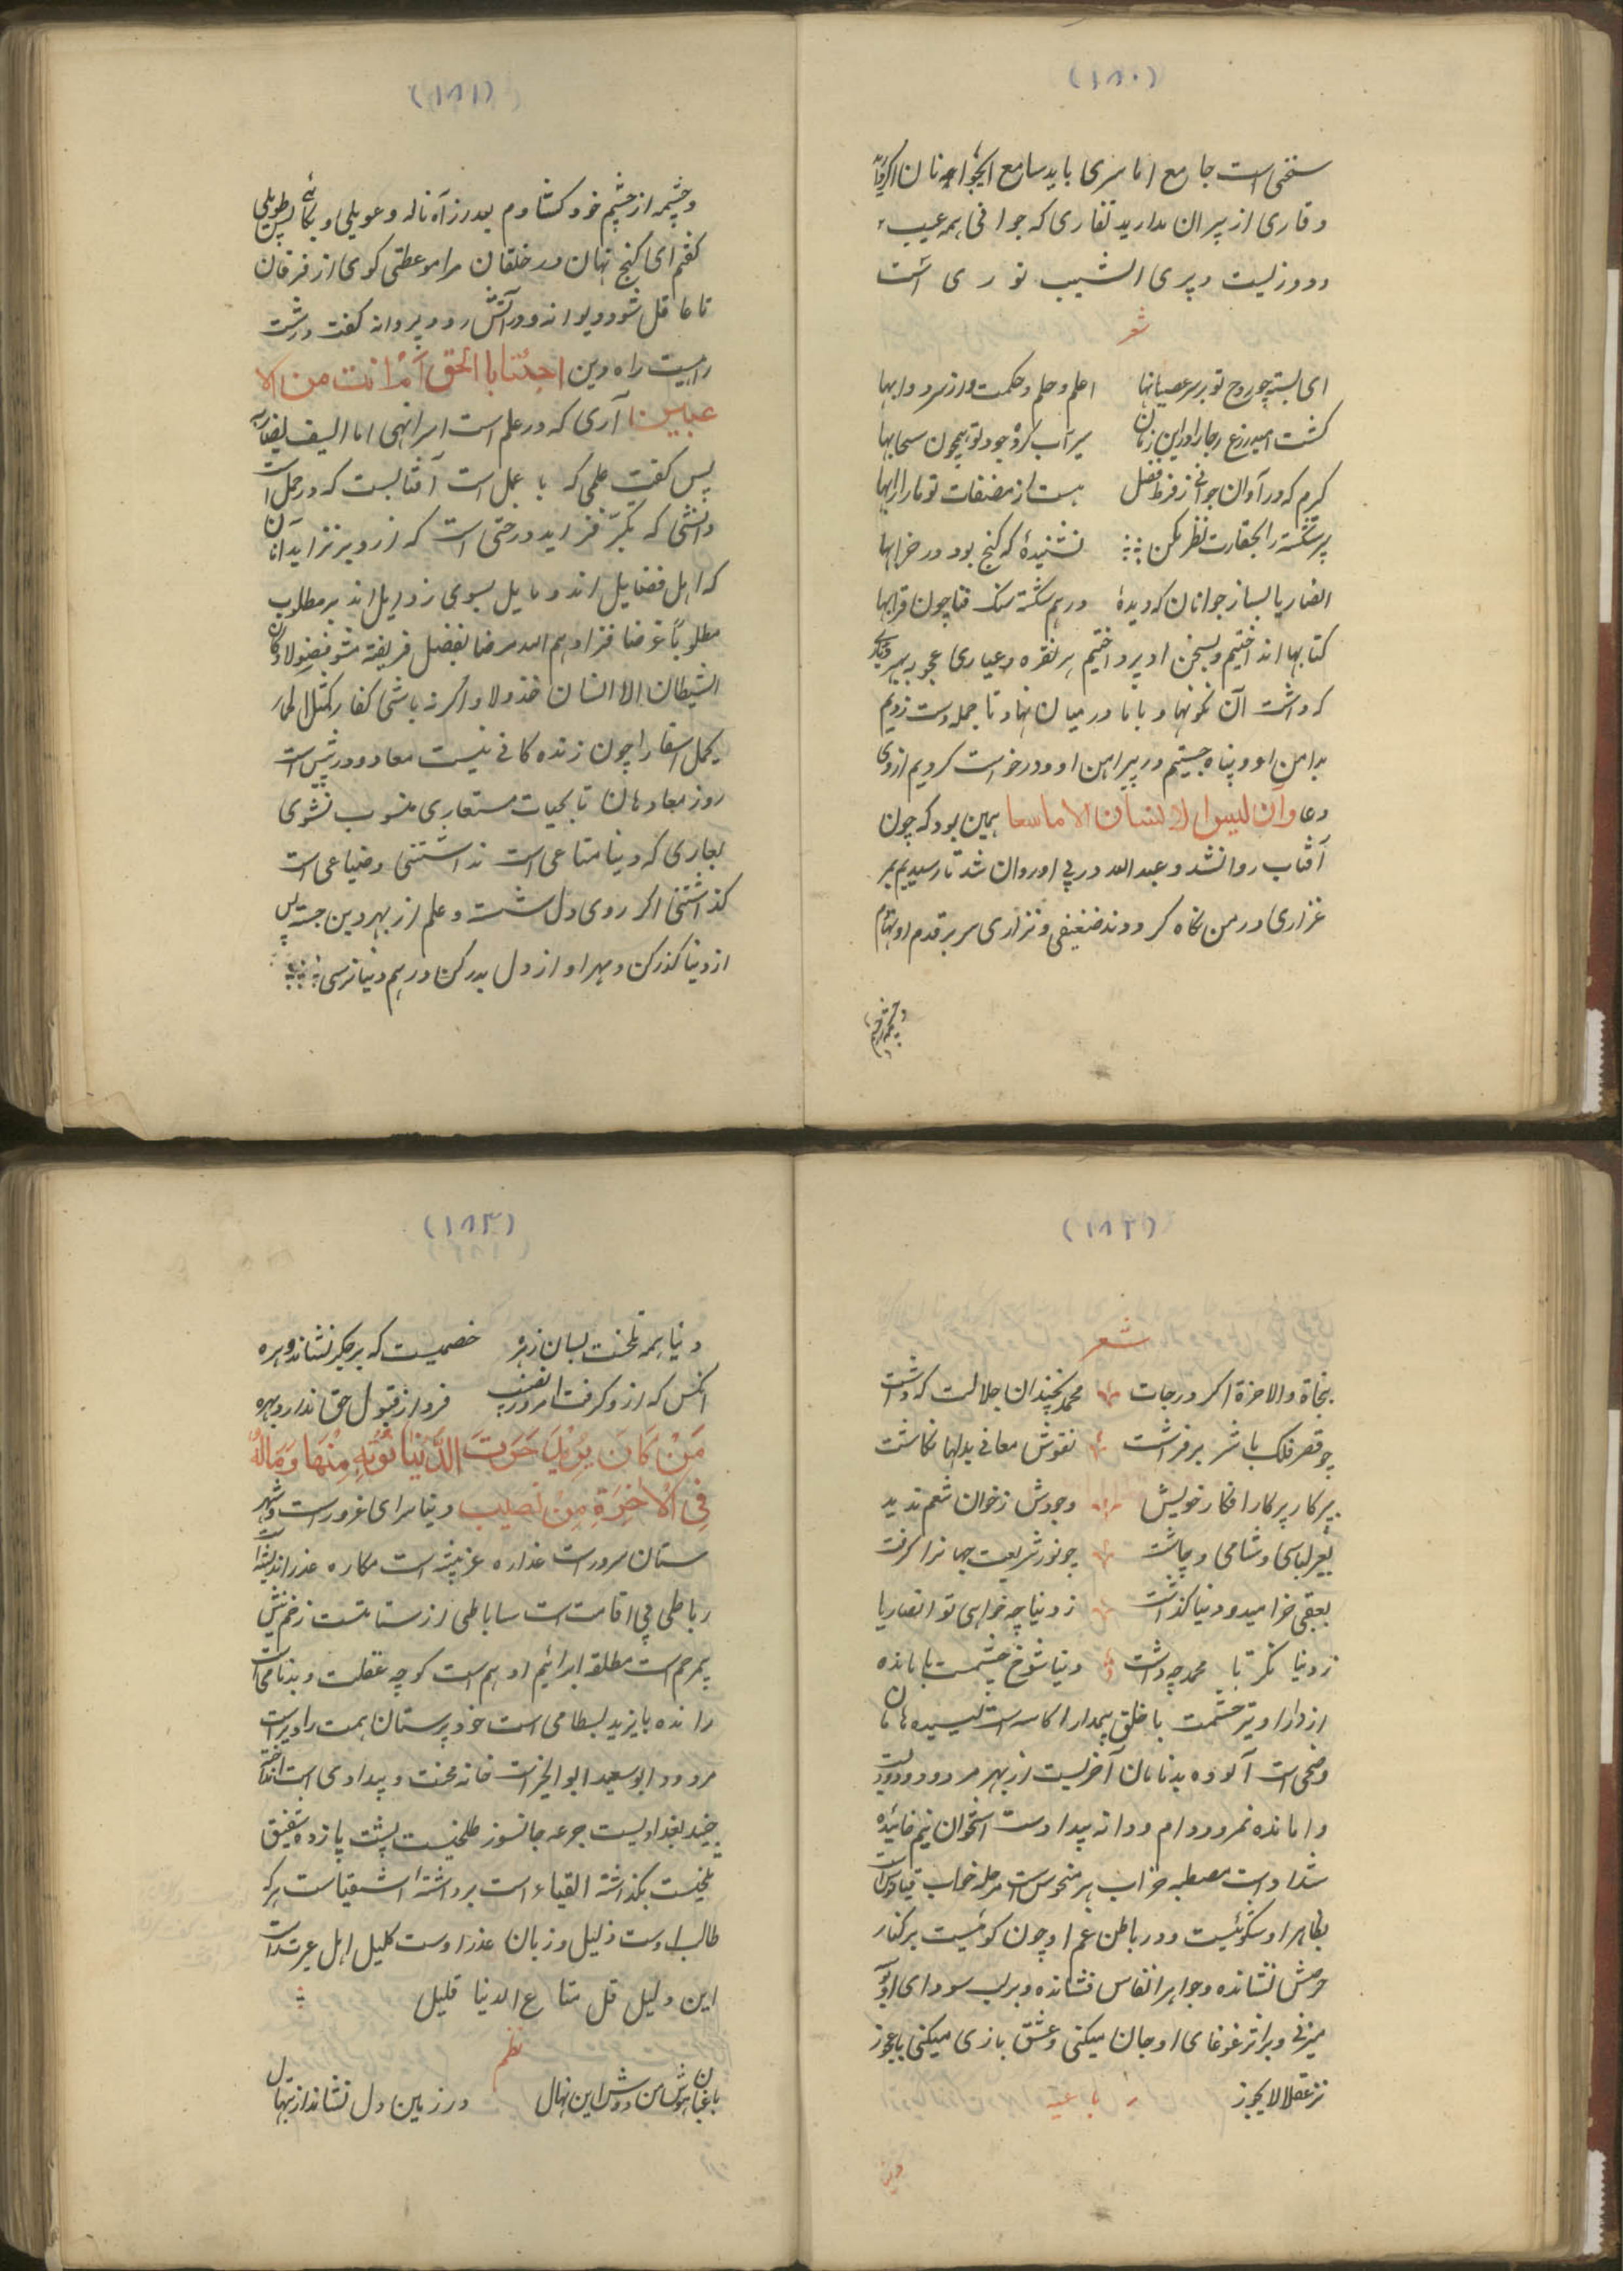 (۱۸۰)
سخنی است جامع اما سری باید سامع
وقاری از پیران بدارید نفاری که جوانی همه عیب
دوروزیست و پیری الشیب نوری است
شعر
ای بسته چو روح تو بر سر عصیانها
علم و حلم و حکمت و از هر دو ابهما
کشت امید زرع رجا را درین زمان
سیرآب کرد جود تو همچون سحابها
کرم که در آوان جوانی از فرط فضل
هست از مصنفات تو ما را کتابها
پیر شکسته را بحقارت نظر مکن
نشنیدهٔ که کنج بود در خرابها
انصاریا بسا ز جوانان که دیدهٔ
درهم شکسته سنک فنا چون قرابها
کتابها انداختیم و بسخن او پرداختیم هر نقره و عیاری عجوبه بهر
که داشت آن نکونهاد با ما در میان نهاد تا جمله دست زدیم
بدامن او و پناه جستیم در پیراهن او و درخواست کردیم ازوی
دعا وان لیس للانسان الا ما سعا همین بود که چون
آفتاب روانشد و عبد الله در پی او روان شد تا رسیدیم بر
غزاری در من نکاه کرد و ند ضعیفی و نزاری سر بر قدم او نهادم
و چشمه از چشم
(۱۸۱)
و چشمه از چشم خود کشادم بعد از آه ناله و عویلی و بکائی پس طویلی
کفتم ای کنج نهان در خلقان مرا موعظتی کوی از فرقان
تا عاقل شود دیوانه و در آتش رود پروانه کفت درشت
راهیست راه دین اجئتنا بالحق أم انت من اللا
عبین آری که در علم است امر و نهی اما السیف
پس کفت علمی که با عمل است آفتابست که در حمل است
دانشی که تکبر فزاید درختی است که ازو بر نزاید آنان
که اهل فضایل اند و مایل بسوی رذایل اند بر مطلوب
مطلوباً غرضا فزادهم الله مرضا بفضل فریفته مشو فضولا و کان
الشیطان للانسان خذولا و اکر نه باشی کفار کمثل الحمار
یحمل اسفارا چون زنده کانی نیست معاد و در پیش است
روز معاد هان تا بحیات مستعاری منسوب نشوی
بعاری که دنیا متاعی است نداشتنی و ضیاعی است
کذاشتنی اکر روی دل شست و علم از بهر دین جست پس
از دنیا کذر کن و مهر او از دل بدر کن درهم دنیا ترسی
(۱۸۲)
شعر
نجاة والاخرة اکبر درجات
محمد بچندان جلالت که داشت
چو قصر فلک با شر برفراشت
نقوش معانی بدلها نکاشت
بپرکار پرکار افکار خویش
وجودش ز خوان نعم ندید
بغیر لباسی و شامی و چاشت
چو نور شریعت جهانرا کرفت
بعقبی خرامید و دنیا کذاشت
ز دنیا چه خواهی تو انصاریا
ز دنیا نکر تا محمد چه داشت
دنیا شوخ چشمست با مانده
از دارا و بتر حشمت با خلق بیمدارا کاسه است لیسیده هامان
وضحی است آلوده بدنامان آخریست از بهر مردود
وامانده نمرود دام و دانه بیدادست استخوان نیم خائیده
شداد است مصطبه خراب هر منحوس است مرحله خواب قیانوس است
بظاهر او شکوئیست و در باطن غم او چون کوئیست بر کنار
حرصش نشانده و جواهر انفاس فشانده و بر لب سودای او بوسه
میزنی و برانر غوغای او جان میکنی و عشق بازی میکنی با عجوز
نزعقلا لا یجوز
رباعیه
دنیا
(۱۸۳)
دنیا همه تلخست بسان زهره
خصمیست که بر جکر نشاند دهره
انکس که ازو کرفت امروز نصیب
فردا ز قبول حق ندارد بهره
مَنْ کَانَ یُرِیْدُ حَرَثَ الدُّنْیَا نُؤْتِهِ مِنْهَا وَمَالَهُ
فِی الْاَخِرَةِ مِنْ نَصیب دنیا سرای غرورست و شهر
ستان سرورست غداره غربیبه است مکاره عذر اندیشه است
رباطی پی اقامتست ساباطی از ستا متست زخم نیش
بیمرحم است مطلقه ابرائیم ادهم است کوچه غفلت و بدنامی است
رانده بایزید بسطامی است خودپرستان همت را دیر است
مردود ابو سعید ابو الخیر است خانه محنت و بیدادی است انداخته
جنید بغدادیست جرعه جانسوز تلخیست پشت پا زده شقیق
بلخیست بکذاشته القیاء است برداشته اشقیاست هر که
طالب اوست ذلیل و زبان عذر اوست کلیل اهل عبرت راست
این دلیل قل متاع الدنیا قلیل
نظم
باغبان هوش من دوش این نهال
در زمین دل نشاند از بتهال